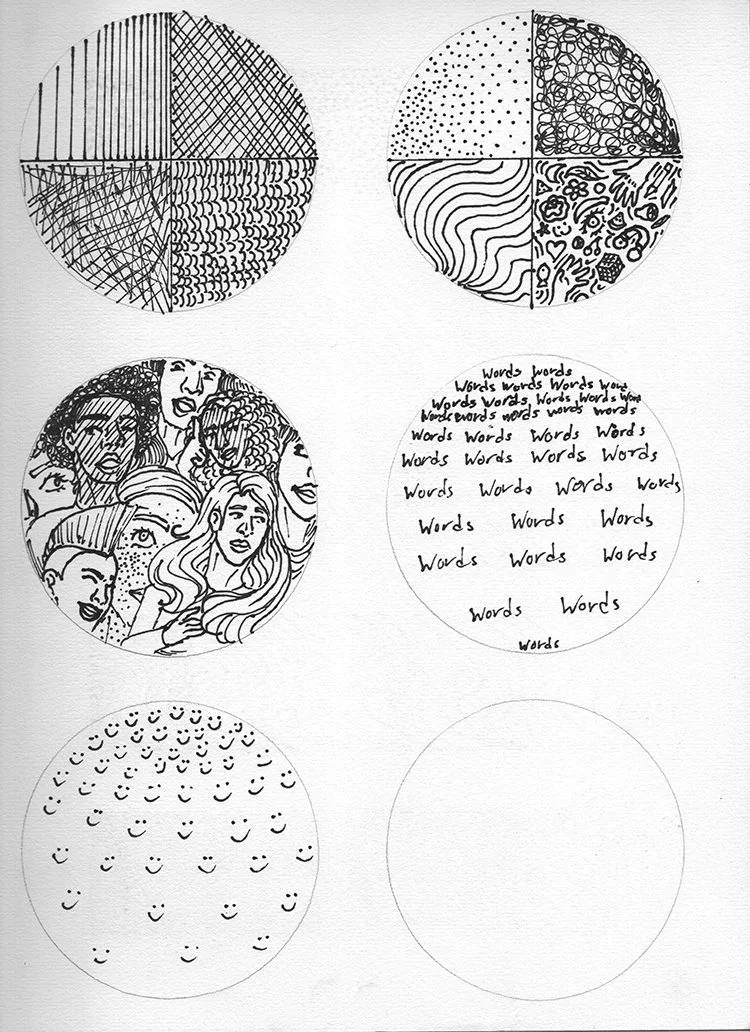 Words Words
Words Words Words Words
Words Words Words Words Words
Words words words words words
Words Words Words Words
Words Words Words Words
Words Words Words Words
Words Words Words
Words Words Words
Words Words
Words